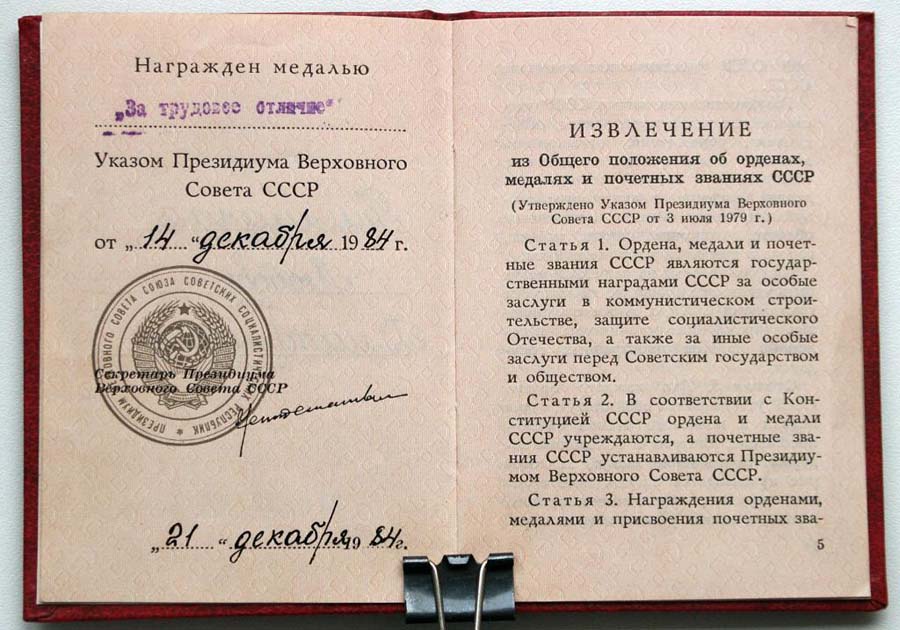 Награжден медалью
„За трудовое отличие“
Указом Президиума Верховного
Совета СССР
от „14“ декабря 1984 г.
ПРЕЗИДИУМ ВЕРХОВНОГО СОВЕТА СОЮЗА СОВЕТСКИХ СОЦИАЛИСТИЧЕСКИХ РЕСПУБЛИК
Секретарь Президиума
Верховного Совета СССР
„21“ декабря 1984 г.
ИЗВЛЕЧЕНИЕ
из Общего положения об орденах,
медалях и почетных званиях СССР
(Утверждено Указом Президиума Верховного
Совета СССР от 3 июля 1979 г.)
Статья 1. Ордена, медали и почет-
ные звания СССР являются государ-
ственными наградами СССР за особые
заслуги в коммунистическом строи-
тельстве, защите социалистического
Отечества, а также за иные особые
заслуги перед Советским государством
и обществом.
Статья 2. В соответствии с Кон-
ституцией СССР ордена и медали
СССР учреждаются, а почетные зва-
ния СССР устанавливаются Президиу-
мом Верховного Совета СССР.
Статья 3. Награждения орденами,
медалями и присвоения почетных зва-
5